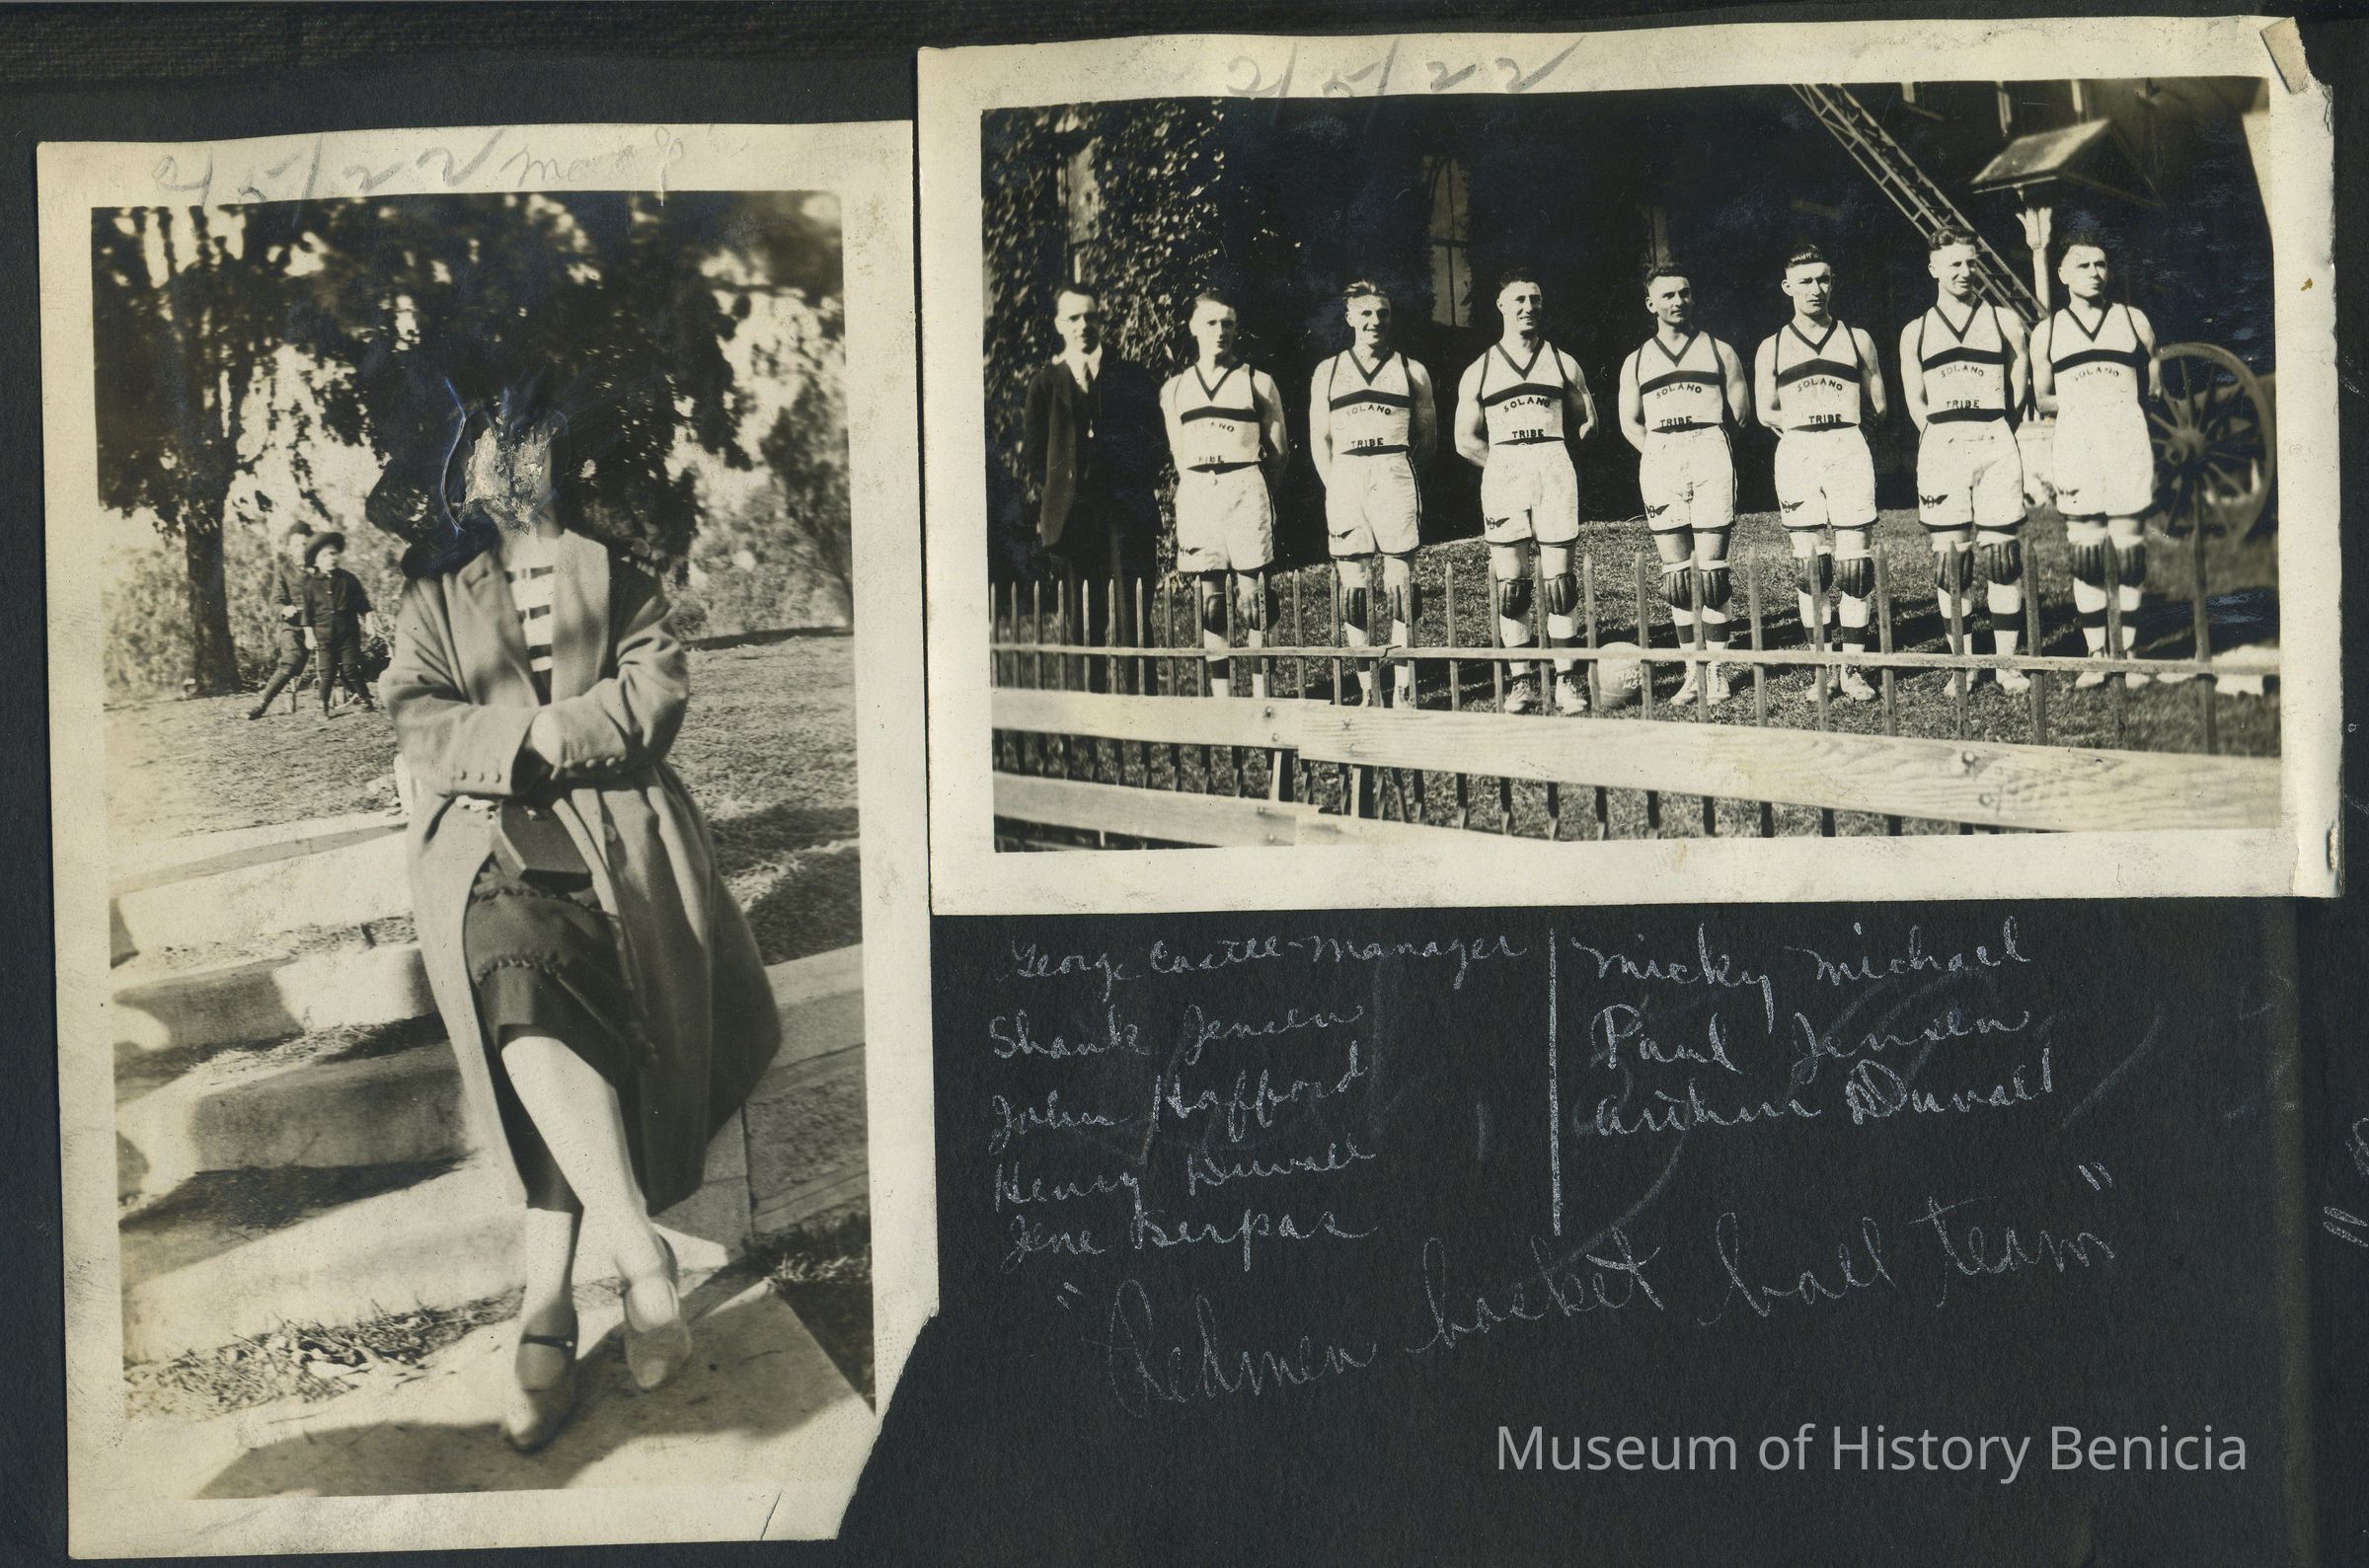 2/5/22
2/5/22
SOLANO
TRIBE
SOLANO
TRIBE
SOLANO
TRIBE
SOLANO
TRIBE
SOLANO
TRIBE
SOLANO
George Castle-Manager
Shank Jensen
John Hafford
Henry Duvall
Jene Serpas
Micky Michael
Paul Jensen
Arthur Duvall
"Redmen basket ball team"
Museum of History Benicia